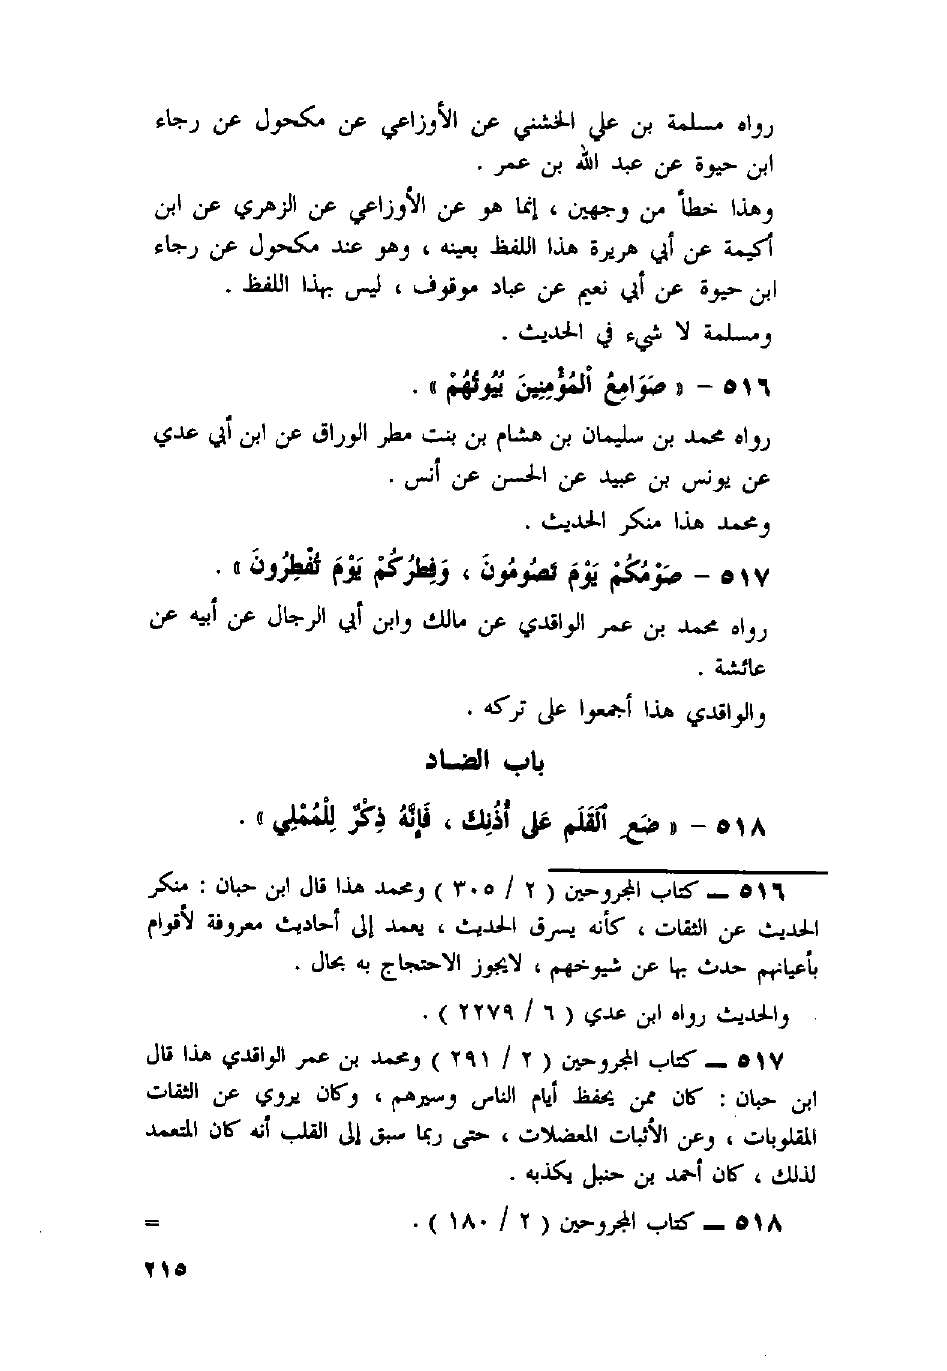 رواه مسلمة بن علي الخشني عن الأوزاعي عن مكحول عن رجاء
ابن حيوة عن عبد الله بن عمر .
وهذا خطأ من وجهين ، إنما هو عن الأوزاعي عن الزهري عن ابن
أكيمة عن أبي هريرة هذا اللفظ بعينه ، وهو عند مكحول عن رجاء
ابن حيوة عن أبي نعيم عن عباد موقوف ، ليس بهذا اللفظ .
ومسلمة لا شيء في الحديث .
٥١٦ – « صَوَامِعُ ٱلمُؤْمِنِينَ بُيُوتُهُمْ » .
رواه محمد بن سليمان بن هشام بن بنت مطر الوراق عن ابن أبي عدي
عن يونس بن عبيد عن الحسن عن أنس .
ومحمد هذا منكر الحديث .
٥١٧ – صَوْمُكُمْ يَوْمَ تَصُومُونَ ، وَفِطْرُكُمْ يَوْمَ تُفْطِرُونَ » .
رواه محمد بن عمر الواقدي عن مالك وابن أبي الرجال عن أبيه عن
عائشة .
والواقدي هذا أجمعوا على تركه .
باب الضاد
٥١٨ – « ضَعِ ٱلقَلَم عَلى أُذُنِكَ ، فَإِنَّهُ ذِكْرٌ لِلْمُمْلِي » .
٥١٦ ــ كتاب المجروحين ( ٢ / ٣٠٥ ) ومحمد هذا قال ابن حبان : منكر
الحديث عن الثقات ، كأنه يسرق الحديث ، يعمد إلى أحاديث معروفة لأقوام
بأعيانهم حدث بها عن شيوخهم ، لايجوز الاحتجاج به بحال .
والحديث رواه ابن عدي ( ٦ / ٢٢٧٩ ) .
٥١٧ ــ كتاب المجروحين ( ٢ / ٢٩١ ) ومحمد بن عمر الواقدي هذا قال
ابن حبان : كان ممن يحفظ أيام الناس وسيرهم ، وكان يروي عن الثقات
المقلوبات ، وعن الأثبات المعضلات ، حتى ربما سبق إلى القلب أنه كان المتعمد
لذلك ، كان أحمد بن حنبل يكذبه .
٥١٨ ــ كتاب المجروحين ( ٢ / ١٨٠ ) . =
٢١٥